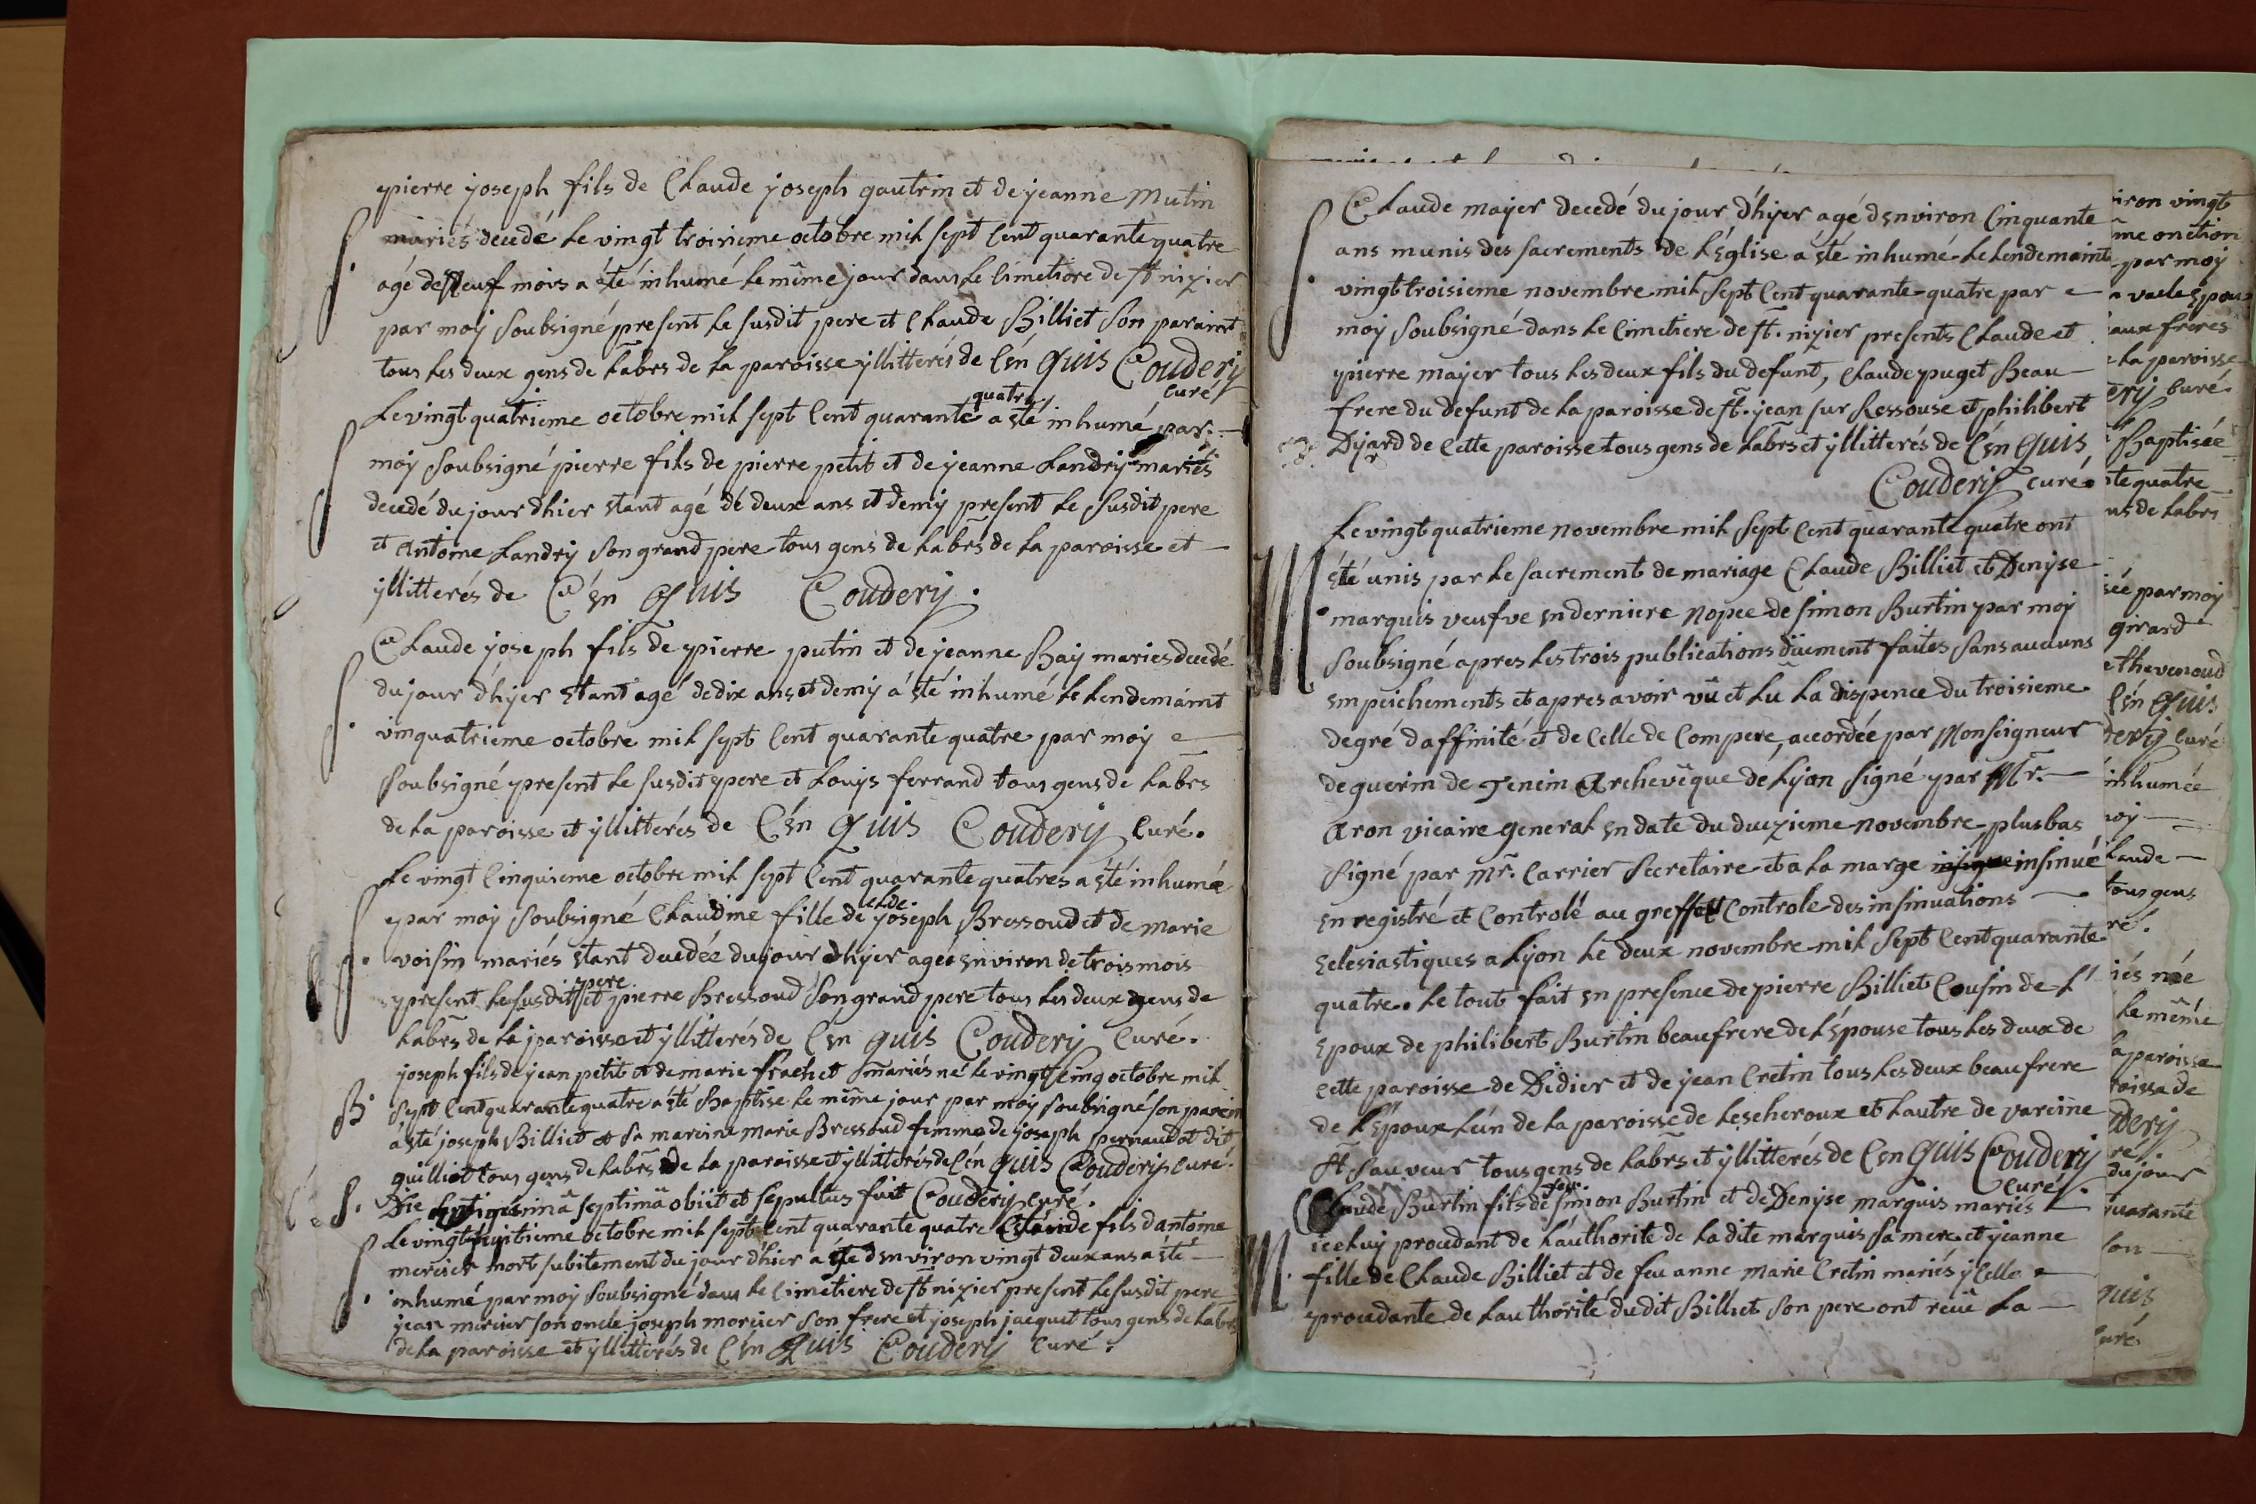 pierre joseph fils de Claude joseph gautrin et de jeanne Mutin
mariés decedé le vingt troisieme octobre mil sept cent quarante quatre
S.
agé de Neuf mois a été inhumé le même jour dans le Cimetiere de st nizier
par moy Soubsigné present le susdit pere et Claude Billiet Son paraint
tous les deux gens de labrs de la paroisse yllitterés de C'en Quis Coudery
curé
Le vingt quatrieme octobre mil sept cent quarante quatre a êté inhumé par
S
moy Soubsigné pierre fils de pierre petit et de jeanne Landry mariés
decedé du jour dhier etant agé dé deux ans et demy present le Susdit pere
et antoine Landry Son grand pere tous gens de labrs de la paroisse et
yllitterés de C'en Quis Coudery.
Claude joseph fils de pierre putin et de jeanne Bay mariés decedé
S.
du jour d'hyer etant agé de dix ans et demy á êté inhumé le lendemaint
vinquatrieme octobre mil sept cent quarante quatre par moy
soubsigné present le susdit pere et Louys ferrand tous gens de labrs
de la paroisse et yllitterés de C'en Quis Coudery Curé.
Le vingt Cinquieme octobre mil sept cent quarante quatres a êté inhumée
par moy Soubsigné Claudine fille de joseph Bressoud et de marie
S.
voisin mariés etant decedée du jour dhyer ageé environ de trois mois
present le susdit pere et pierre Bressoud Son grand pere tous les deux gens de
labrs de la paroisse et yllitterés de C'en quis Coudery Curé.
joseph fils de jean petit et de marie frachet mariés né le vingt cinq octobre mil
B.
sept Cent quarante quatre a êté Baptisé le même jour par moy soubsigné son parein
à êté joseph Billiet et Sa mareine marie Bressoud femme de joseph pernaudat dit
quilliot tous gens de labrs de la paroisse et yllitterés de C'en quis Coudery curé.
S. Die septimâ obiit et sepultus fuit Coudery curé.
Le vingt huitieme octobre mil sept Cent quarante quatre Claude fils d'antoine
S.
mercier mort subitement du jour d'hier agé d'environ vingt deux ans a êté
inhumé par moy Soubsigné dans le Cimetiere de st nizier present le susdit pere
jean mercier son oncle joseph mercier Son frere et joseph jacquet tous gens de labrs
de la paroisse et yllitterés de C'en Quis Coudery curé.
Claude mayer decedé du jour d'hyer agé d'environ Cinquante
S.
ans munis des sacrements de l'Eglise á êté inhumé le lendemaint
vingt troisieme novembre mil sept Cent quarante quatre par
moy Soubsigné dans le Cimetiere de st. nizier presents Claude et
pierre mayer tous les deux fils du defunt, Claude puget Beau
frere du defunt de la paroisse de st. jean sur Ressouse et philibert
Dyard de cette paroisse tous gens de labrs et yllitterés de C'en Quis
Coudery curé.
Le vingt quatrieme novembre mil sept Cent quarante quatre ont
M.
êté unis par le sacrement de mariage Claude Billiet et Denyse
marquis veufve en derniere nopce de Simon Burtin par moy
soubsigné apres les trois publications düement faites Sans aucuns
empeichements et apres avoir vû et lû la dispence du troisieme
degré d'affinité et de Celle de Compere, accordée par Monseigneur
de guerin de Tencin Archevêque dé Lyon Signé par Mr.
Aron vicaire general en date du duezieme novembre plus bas
Signé par Mr. Carrier Secretaire et a la marge insinué
enregistré et Controlé au greffe Controle des insinuations
eclesiastiques a Lyon le deux novembre mil sept Cent quarante
quatre. le tout fait en presence de pierre Billiet Cousin de l'
epoux de philibert Burtin beaufrere de l'épouse tous les deux de
cette paroisse de Didier et de jean Cretin tous les deux beau frere
de l'epoux l'ún de la paroisse de Lescheroux et l'autre de vareine
st Sauveur tous gens de labrs et yllitterés de C'en Quis Coudery
curé.
Claude Burtin fils de feu Simon Burtin et de Denyse marquis mariés
M.
iceluy procedant de l'authorité de la dite marquis Sa mere et jeanne
fille de Claude Billiet et de feu anne marie Cretin mariés ycelle
procedante de l'authorité du dit Billiet Son pere ont recû la
iron vingt
me onction
par moy
aux freres
la paroisse
ery Curé.
Baptisée
te quatre
ns de labrs
ée par moy
girard
thevenoud
C'en Quis
dery Curé
inhumée
moy
Claude
tous gens
ré.
iés née
le même
la paroisse
roisse de
dery
ré.
du jour
quarante
Son
quis
curé